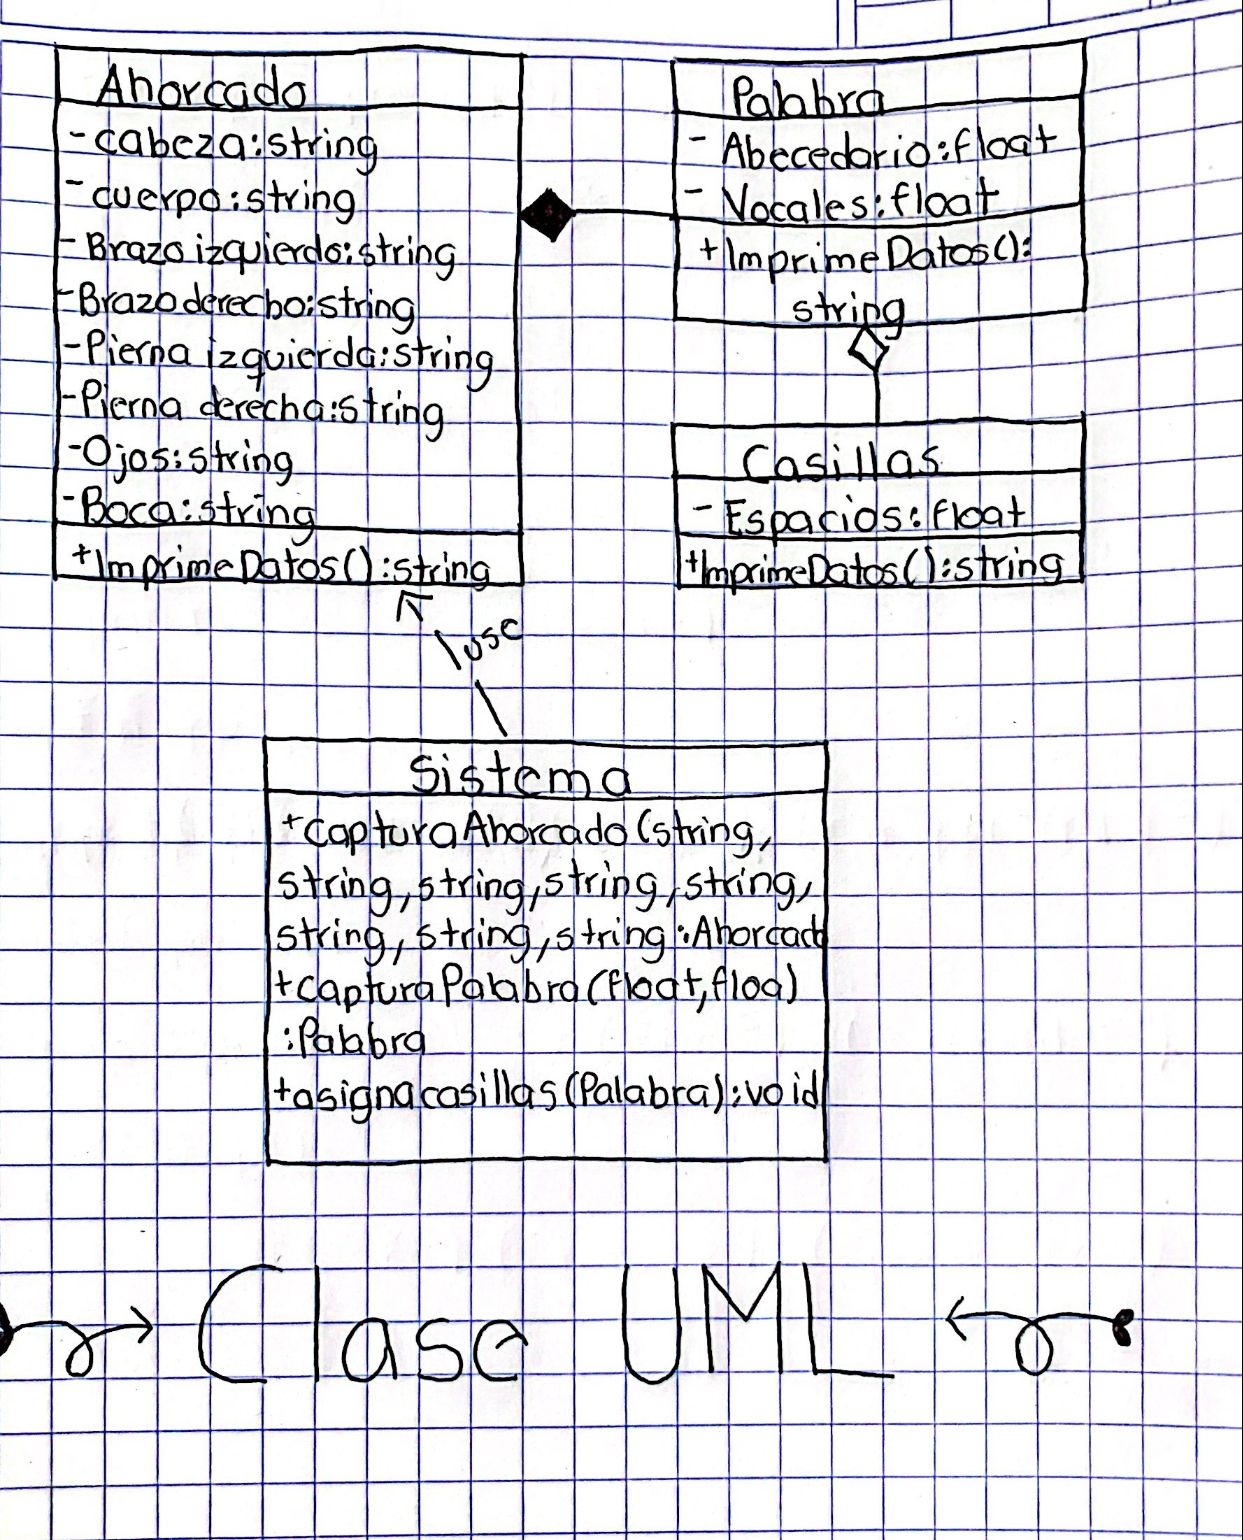 Ahorcado
- cabeza:string
- cuerpo:string
- Brazo izquierdo:string
- Brazo derecho:string
- Pierna izquierda:string
- Pierna derecha:string
- Ojos:string
- Boca:string
+ImprimeDatos():string
Palabra
- Abecedario:float
- Vocales:float
+ImprimeDatos():
string
Casillas
- Espacios:float
+ImprimeDatos():string
use
Sistema
+capturaAhorcado(string,
string,string,string,string,
string,string,string:Ahorcado
+capturaPalabra(float,floa)
:Palabra
+asignacasillas(Palabra):void
Clase UML